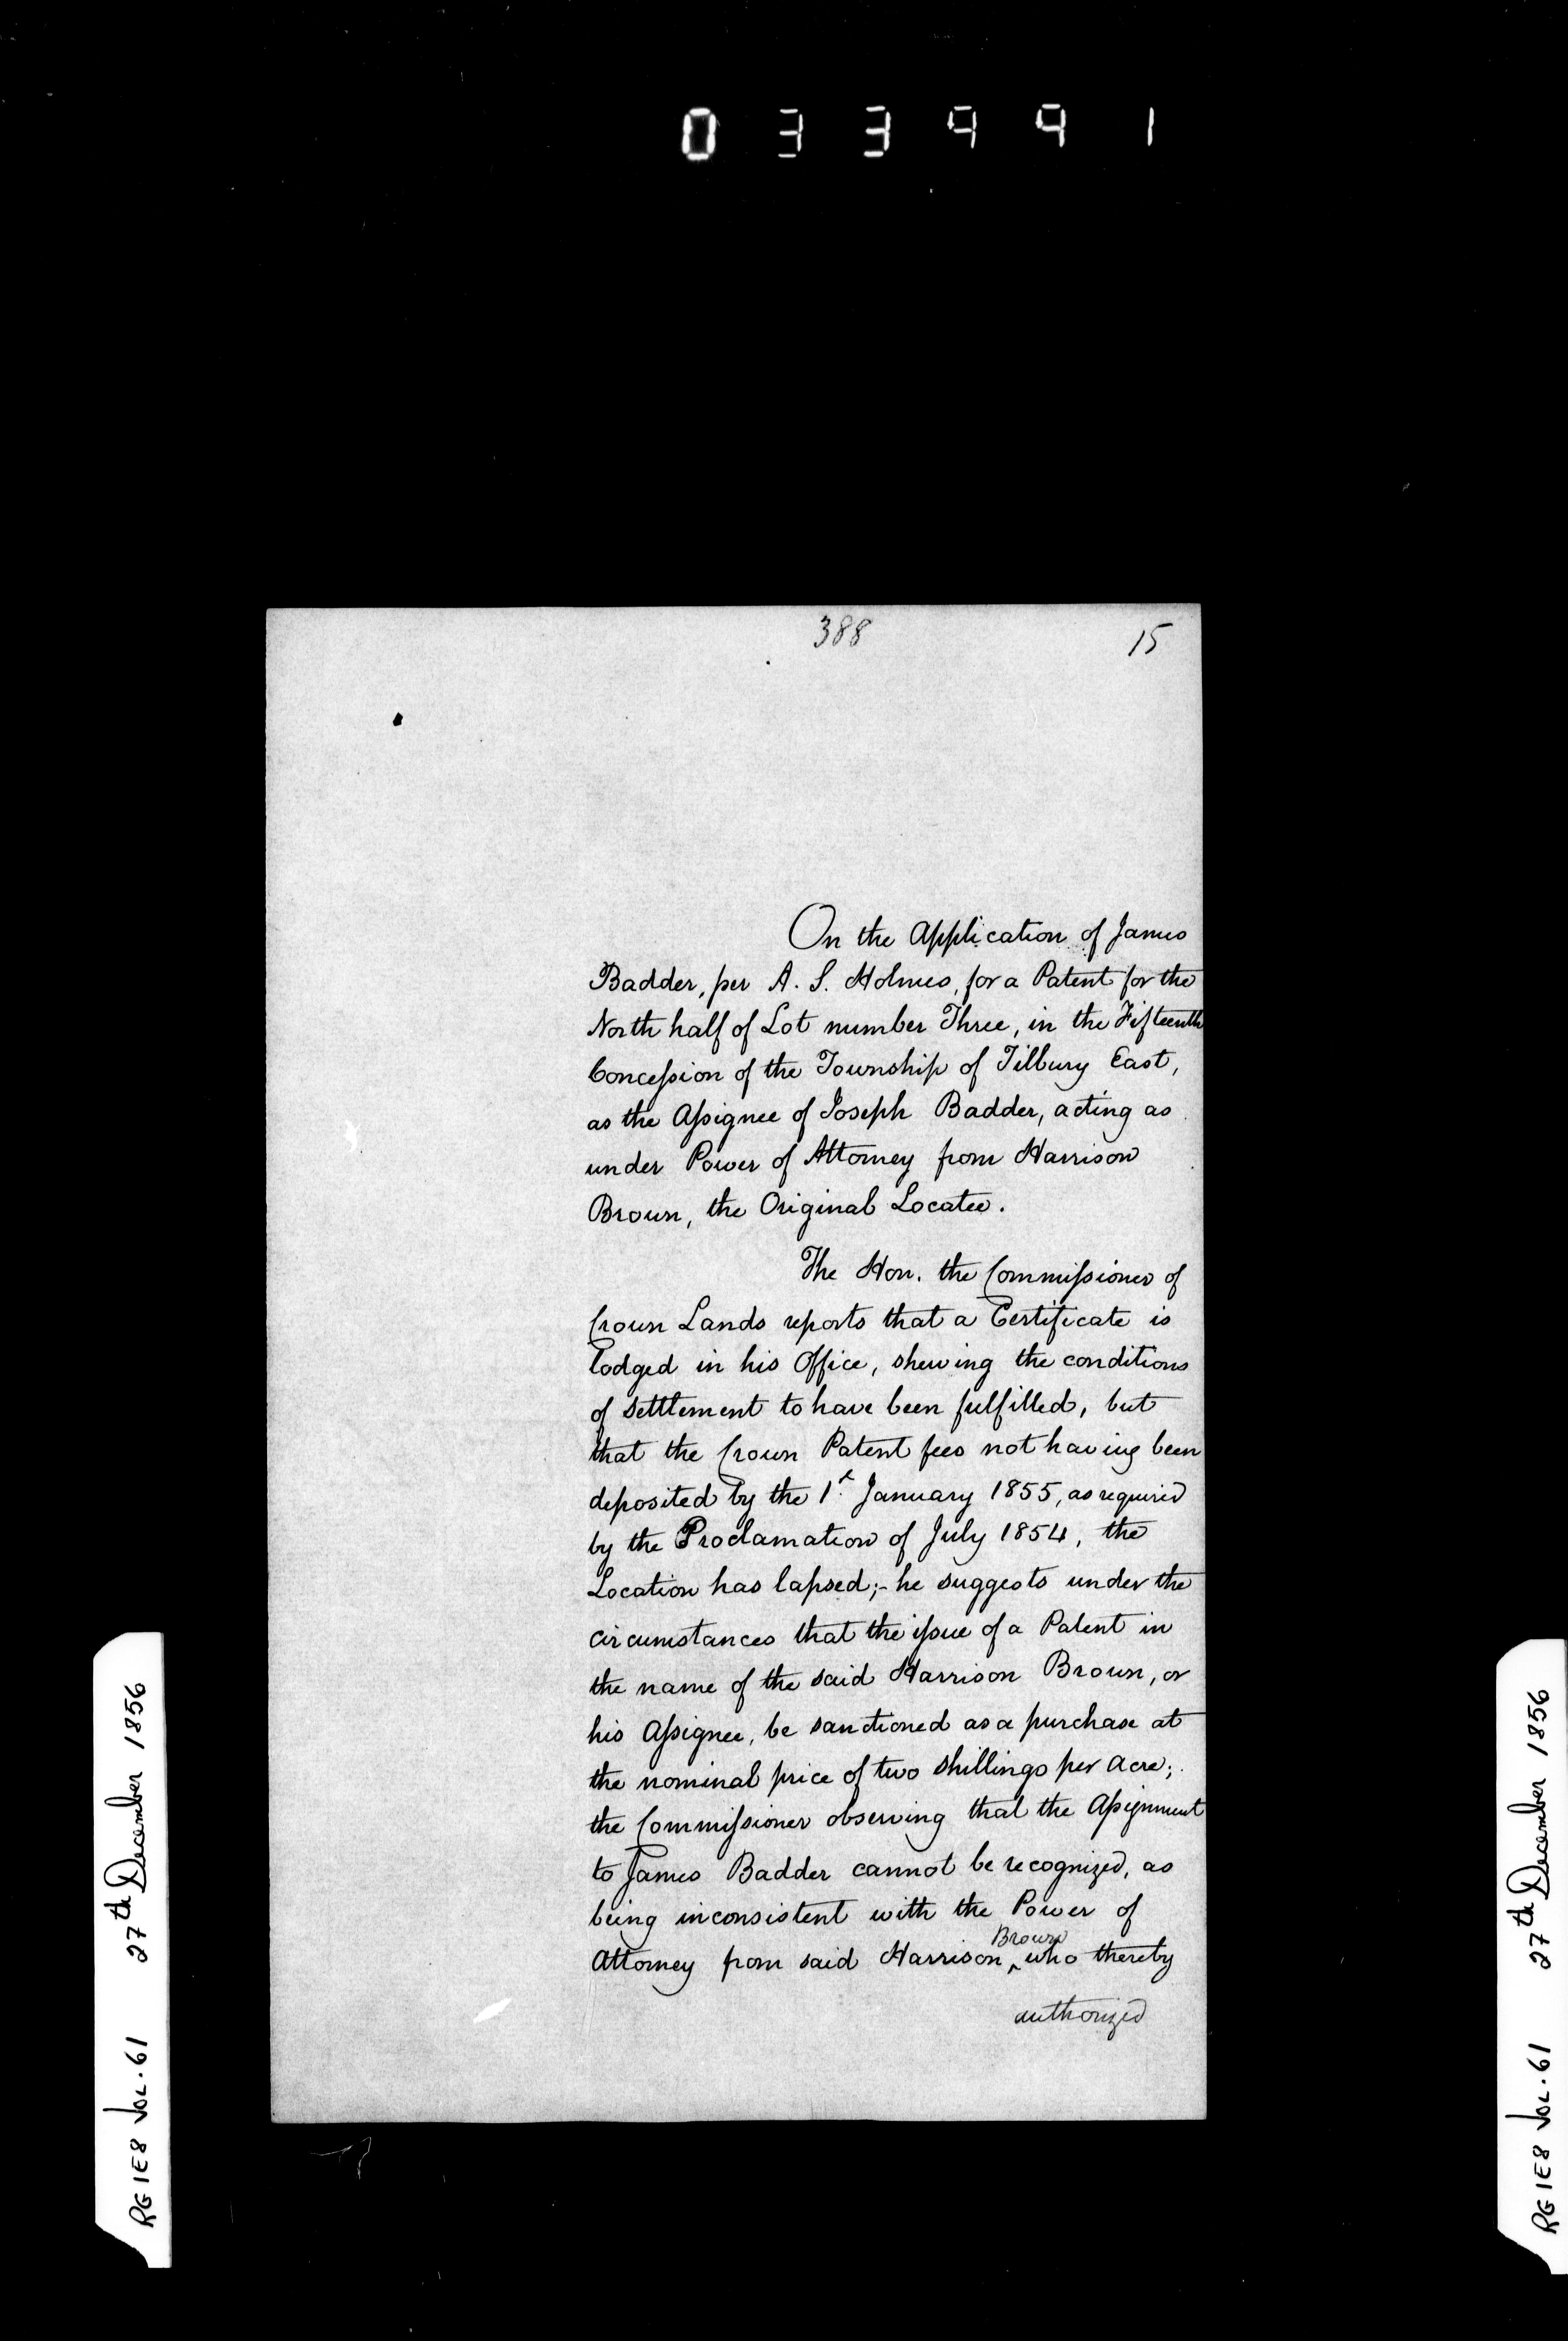 033991
388 15
On the Application of James
Badder, per A. S. Holmes, for a Patent for the
North half of Lot number Three, in the Fifteenth
Concession of the Township of Tilbury East,
as the Assignee of Joseph Badder, acting as
under Power of Attorney from Harrison
Brown, the Original Locatee.
The Hon. the Commissioner of
Crown Lands reports that a Certificate is
lodged in his Office, shewing the conditions
of settlement to have been fulfilled, but
that the Crown Patent fees not having been
deposited by the 1st January 1855, as required
by the Proclamation of July 1854, the
Location has lapsed;- he suggests under the
circumstances that the issue of a Patent in
the name of the said Harrison Brown, or
his Assignee, be sanctioned as a purchase at
the nominal price of two shillings per acre;
the Commissioner observing that the Assignment
to James Badder cannot be recognized, as
being inconsistent with the Power of
Attorney from said Harrison ^Brown who thereby
authorized
RG 1E8 VOL. 61 27th December 1856
RG 1E8 VOL. 61 27th December 1856